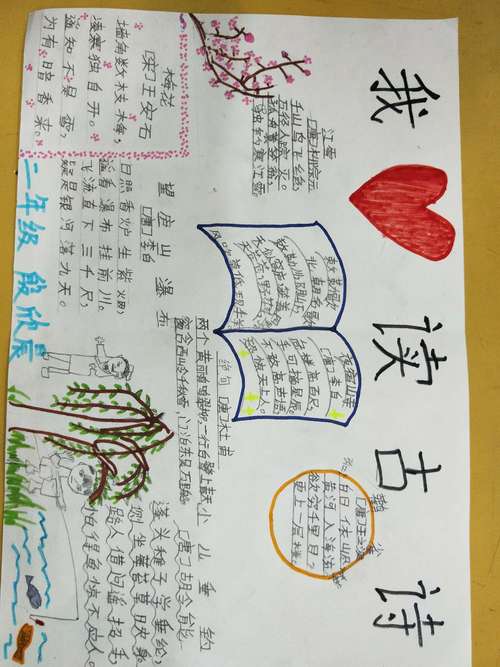 我读古诗
梅花
[宋]王安石
墙角数枝梅，
凌寒独自开。
遥知不是雪，
为有暗香来。
江雪
[唐]柳宗元
千山鸟飞绝，
万径人踪灭。
孤舟蓑笠翁，
独钓寒江雪。
望庐山瀑布
[唐]李白
日照香炉生紫烟，
遥看瀑布挂前川。
飞流直下三千尺，
疑是银河落九天。
敕勒歌
北朝民歌
敕勒川，阴山下。
天似穹庐，笼盖四野。
天苍苍，野茫茫。
风吹草低见牛羊。
夜宿山寺
[唐]李白
危楼高百尺，
手可摘星辰。
不敢高声语，
恐惊天上人。
绝句 [唐]杜甫
两个黄鹂鸣翠柳，一行白鹭上青天
窗含西岭千秋雪，门泊东吴万里船
[唐]王之涣
白日依山尽
黄河入海流。
欲穷千里目？
更上一层楼。
小儿垂钓
[唐]胡令能
蓬头稚子学垂纶，
侧坐莓苔草映身。
路人借问遥招手，
怕得鱼惊不应人。
二年级 段欣宸